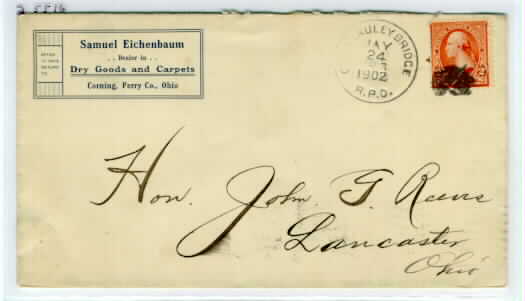 Samuel Eichenbaum
. . Dealer in . .
Dry Goods and Carpets
Corning, Perry Co., Ohio
AULEY BRIDGE
MAY
24
1902
R.P.O.
Hon. John. G. Reeves
Lancaster
Ohio